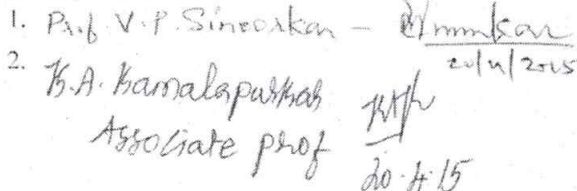 1. Prof V.P. Sinoorkar -
20/4/2015
2. K.A. Kamalapurkar
Associate prof
20.4.15